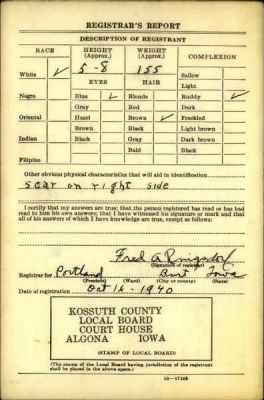 REGISTRAR'S REPORT
DESCRIPTION OF REGISTRANT
RACE HEIGHT (Approx.) WEIGHT (Approx.) COMPLEXION
White ✓ 5-8 155 Sallow
EYES HAIR Light
Negro Blue ✓ Blonde Ruddy ✓
Gray Red Dark
Oriental Hazel Brown ✓ Freckled
Brown Black Light brown
Indian Black Gray Dark brown
Bald Black
Filipino
Other obvious physical characteristics that will aid in identification
Scar on right side
I certify that my answers are true; that the person registered has read or has had
read to him his own answers; that I have witnessed his signature or mark and that
all of his answers of which I have knowledge are true, except as follows:
Fred A
(Signature of registrar)
Registrar for Portland Burt Iowa
(Precinct) (Ward) (City or county) (State)
Date of registration Oct 16-1940
KOSSUTH COUNTY
LOCAL BOARD
COURT HOUSE
ALGONA IOWA
(STAMP OF LOCAL BOARD)
(The stamp of the Local Board having jurisdiction of the registrant
shall be placed in the above space.)
16-17105